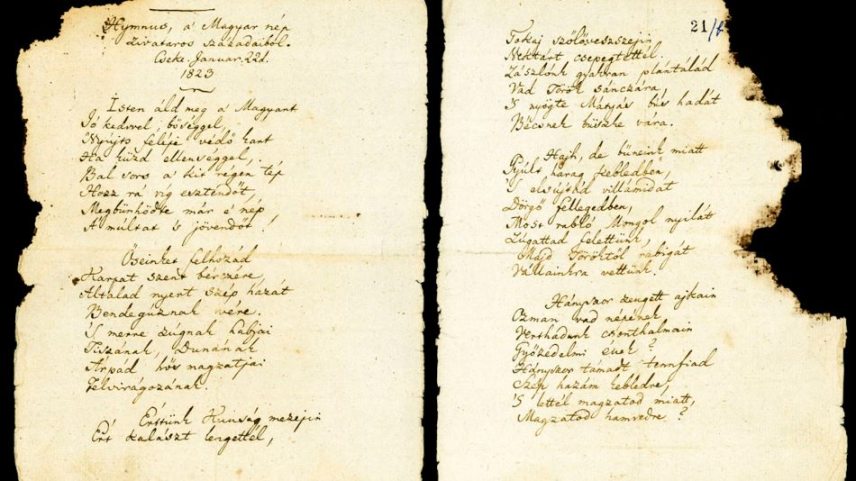 Hymnus, a' Magyar nép
zivataros századaiból.
Cseke Januar. 22d.
1823
Isten áld meg a' Magyart
Jó kedvvel, bőséggel,
Nyujts feléje védő kart
Ha küzd ellenséggel,
Bal sors a' kit régen tép
Hozz rá víg esztendőt,
Megbűnhődte már e' nép
A' múltat 's jövendőt!
Őseinket felhozád
Kárpát szent bérczére,
Általad nyert szép hazát
Bendegúznak vére.
'S merre zúgnak habjai
Tiszának, Dunának
Árpád hős magzatjai
Felvirágozának.
Értünk Kunság mezejin
Ért kalászt lengettél,
21/
Tokaj szőlővesszejin
Nektárt csepegtettél.
Zászlónk gyakran plántálád
Vad Török sánczára,
'S nyögte Mátyás bús hadát
Bécsnek büszke vára.
Hajh, de bűneink miatt
Gyúlt harag kebledben,
'S elsújtád villámidat
Dörgő fellegedben,
Most rabló Mongol nyilát
Zúgattad felettünk,
Majd Töröktől rabigát
Vállainkra vettünk.
Hányszor zengett ajkain
Ozman vad népének
Vert hadunk csonthalmain
Győzedelmi ének?
Hányszor támadt tennfiad
Szép hazám kebledre,
'S lettél magzatod miatt,
Magzatod hamvedre?